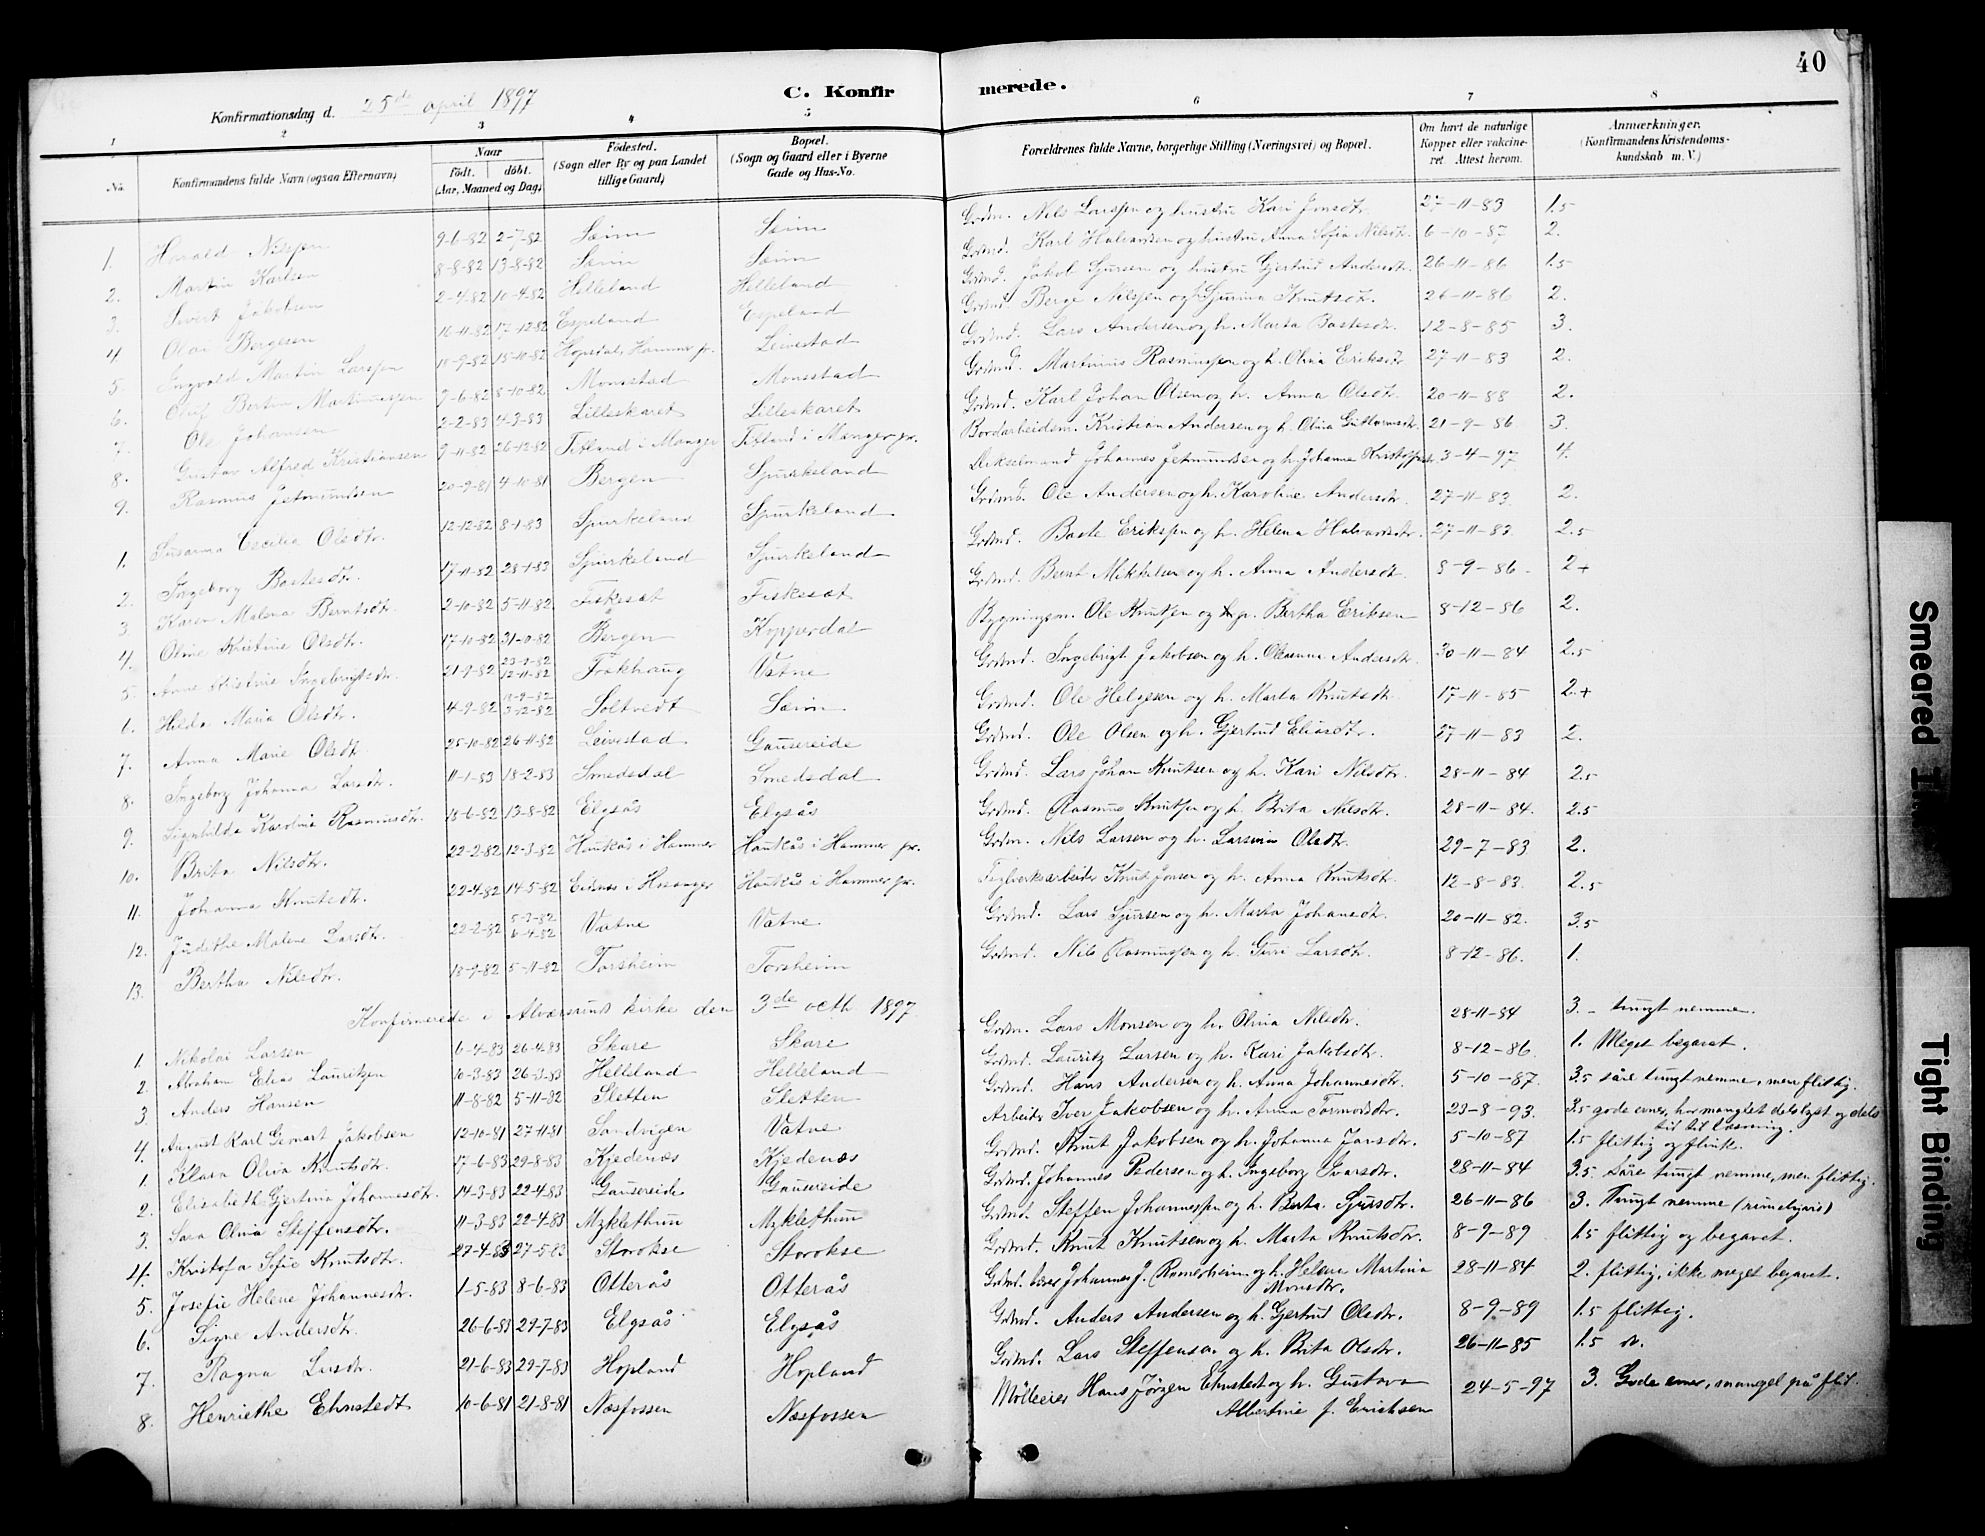 40
C. Konfirmerede.
Konfirmationsdag d. 25de april 1897
1 2 3 4 5 6 7 8
No. Konfirmandens fulde Navn (ogsaa Efternavn) Naar födt. döbt. (Aar, Maaned og Dag) Födested. (Sogn eller By og paa Landet tillige Gaard) Bopæl. (Sogn og Gaard eller i Byerne Gade og Hus-No. Forældrenes fulde Navne, borgerlige Stilling (Næringsvei) og Bopæl. Om havt de naturlige Kopper eller vakcineret Attest herom. Anmærkninger. (Konfirmandens Kristendomskundskab m. V.)
1. Harald Nilssen 9-6-82 2-7-82 Sæim Sæim Grdm. Nils Larssen og hustru Kari Jonsdtr. 27-11-83 1.5
2. Martin Karlsen 8-8-82 13-8-82 Sæim Sæim Grdmd. Karl Halvardsen og hustru Anna Sofia Nilsdtr. 6-10-87 2.
3. Sivert Jakobsen 2-4-82 10-4-82 Helleland Helleland Grdmd. Jakob Sjursen og hustru Gjertrud Andersdtr. 26-11-86 1.5
4 Olai Bergesen 16-11-82 17-12-82 Espeland Espeland Grdmd. Berge Nilssen og h. Sjurina Knutsdtr. 26-11-86 2.
5. Ingvald Martin Larssen 18-9-82 15-10-82 Hopsdal, Hammer pr. Leivestad Grdmd. Lars Andersen og h. Marta Bastesdtr. 12-8-85 3.
6. Oluf Bertin Martinussen 9-6-82 8-10-82 Monsstad Monsstad Grdmd. Martinus Rasmussen og h. Olina Eriksdtr 27-11-83 2.
7. Ole Johansen 2-2-83 4-3-83 Lilleskaret Lilleskaret Grdmd. Karl Johan Olsen og h. Anna Olsdtr. 20-11-88 2.
8. Gustav Alfred Kristiansen 9-11-82 26-12-82 Titland i Manger Titland i Manger pr. Bordarbeiderm. Kristian Andersen og h. Olina Guttormsdtr. 21-9-86 3.
9. Rasmus Jetmundsen 20-9-81 4-10-81 Bergen Spurkeland Johannes Jetmundsen og h. Johanne 3-4-97 4.
1. Susanna Cecilia Olsdtr. 12-12-82 8-1-83 Spurkeland Spurkeland Grdmd. Ole Andersen og h. Karoline Andersdtr. 27-11-83 2.
2. Ingeborg Bastesdtr. 17-11-82 28-1-83 Spurkeland Spurkeland Grdmd. Baste Erikssen og h. Helena Halvardsdtr. 27-11-83 2.5
3. Karen Malena Berntsdtr. 2-10-82 5-11-82 Fiskesæt Fiskesæt Grdmd. Bernt Mikkelsen og h. Anna Andersdtr. 8-9-86 2+
4. Oline Kristine Olsdtr. 17-10-82 31-0-82 Bergen Kopperdal Bygningsm. Ole Knutsen og Bertha Eriksen 8-12-86 2.
5. Anne Kristine Ingebrigtsdtr. 21-9-82 12-11-82 Fokhaug Vatne Grdmd. Ingebrigt Jakobsen og h. Oleanna Andersdtr. 30-11-84 2.5
6. Hilda Maria Olsdtr. 4-9-82 3-12-82 Soltvedt Sæim Grdmd. Ole Helgesen og h. Marta Knutsdtr. 17-11-85 2.+
7. Anna Marie Olsdtr 25-10-82 26-11-82 Leivestad Gausereide Grdmd. Ole Olsen og h. Gjertrud Eliasdtr. 27-11-83 2.
8. Ingeborg Johanna Larsdtr. 11-1-83 18-2-83 Smedsdal Smedsdal Grdmd. Lars Johan Knutsen og h. Kari Nilsdtr. 28-11-84 2.5
9. Signhilda Karolina Rasmusdtr. 18-6-82 13-8-82 Elgsås Elgsås Grdmd. Rasmus Knutsen og h. Brita Nilsdtr. 28-11-84. 2.5
10. Brita Nilsdtr. 22-2-82 12-3-82 Haukås i Hammer Haukås i Hammer pr. Grdm. Nils Larsen og h. Larsina Olsdtr. 29-7-83 2.
11. Johanna Knutsdtr. 22-4-82 14-5-82 Eidnes i Hosanger Haukås i Hammer pr. Teglverksarbeider Knut Jonsen og h. Anna Knutsdtr. 12-8-83. 2.5
12. Judithe Malene Larsdtr. 22-2-82 5-3-82 6-4-82 Vatne Vatne Grdmd. Lars Sjursen og h. Marta Johansdtr. 20-11-82. 3.5
13. Bertha Nilsdtr. 18-9-82 5-11-82 Torsheim Torsheim Grdmd. Nils Rasmussen og h. Guri Larsdtr. 8-12-86. 1.
Konfirmerede i Alversunds kirke den 3de octb 1897
1. Nikolai Larsen 6-4-83 26-4-83 Skare Skare Grdm. Lars Monsen og h. Olina Nilsdtr. 28-11-84 3. - tungt nemme.
2. Abraham Elias Lauritzen 10-3-83 26-3-83 Helleland Helleland Grdmd. Lauritz Larsen og h. Kari Jakobsdtr. 8-12-86. 1. Meget begavet.
3 Anders Hansen 11-8-82 5-11-82 Sletten Sletten Grdmd. Hans Andersen og h. Anna Johannesdtr. 5-10-87. 3.5 såre tungt nemme, men flittig.
4. August Karl Jakobsen 12-10-81 27-11-81 Sandvigen Vatne Arbeider Iver Jakobsen og h. Anna Tormodsdtr. 23-8-93. 3.5 gode evner, har manglet dels lyst og dels tid til læsning.
1 Klara Oliva Knutsdtr. 17-6-83 29-8-83 Kjedenæs Kjedenæs Grdmd. Knut Jakobsen og h. Johanna Jansdtr. 5-10-87 1.5 flittig og flink.
2. Elisabeth Gjertina Johannesdtr. 14-3-83 22-4-83 Gausereide Gausereide Grdmd. Johannes Pedersen og h. Ingeborg Ivarsdtr. 28-11-84 3.5 såre tungt nemme, men flittig.
3. Sara Olina Steffensdtr. 11-3-83 22-4-83 Myklethun Myklethun Grdmd. Steffen Johannessen og h. Berta Sjursdtr. 26-11-86 3. Tungt nemme
4. Kristofa Sofie Knutsdtr. 27-4-83 27-5-83 Storokse Storokse Grdmd. Knut Knutsen og h. Marta Knutsdtr. 8-9-89 1.5 flittig og begavet.
5. Josefie Helene Johannesdtr. 1-5-83 8-6-83 Otterås Otterås Grdmd. Johannes J. Romsloheim og h. Helene Martina Monsdtr. 28-11-84 2. flittig, ikke meget begavet.
6. Signe Andersdtr. 26-6-83 29-7-83 Elgsås Elgsås Grdmd. Anders Andersen og h. Gjertrud Olsdtr. 8-9-89 1.5 flittig.
7. Ragna Larsdtr. 21-6-83 29-7-83 Hopland Hopland Grdmd. Lars Steffensen og h. Brita Olsdtr. 26-11-85 1.5
8. Henriethe Ehnstedt 10-6-81 21-8-81 Næsfossen Næsfossen Mölleeier Hans Jörgen Ehnstedt og h. Gustava Albertine f. Erichsen 24-5-97 3. Gode evner, mangel på flid.
Smeared
Tight Binding